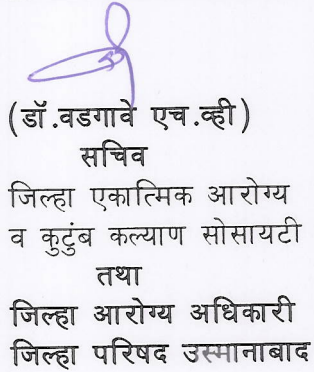 (डॉ.वडगावे एच.व्ही)
सचिव
जिल्हा एकात्मिक आरोग्य
व कुटुंब कल्याण सोसायटी
तथा
जिल्हा आरोग्य अधिकारी
जिल्हा परिषद उस्मानाबाद